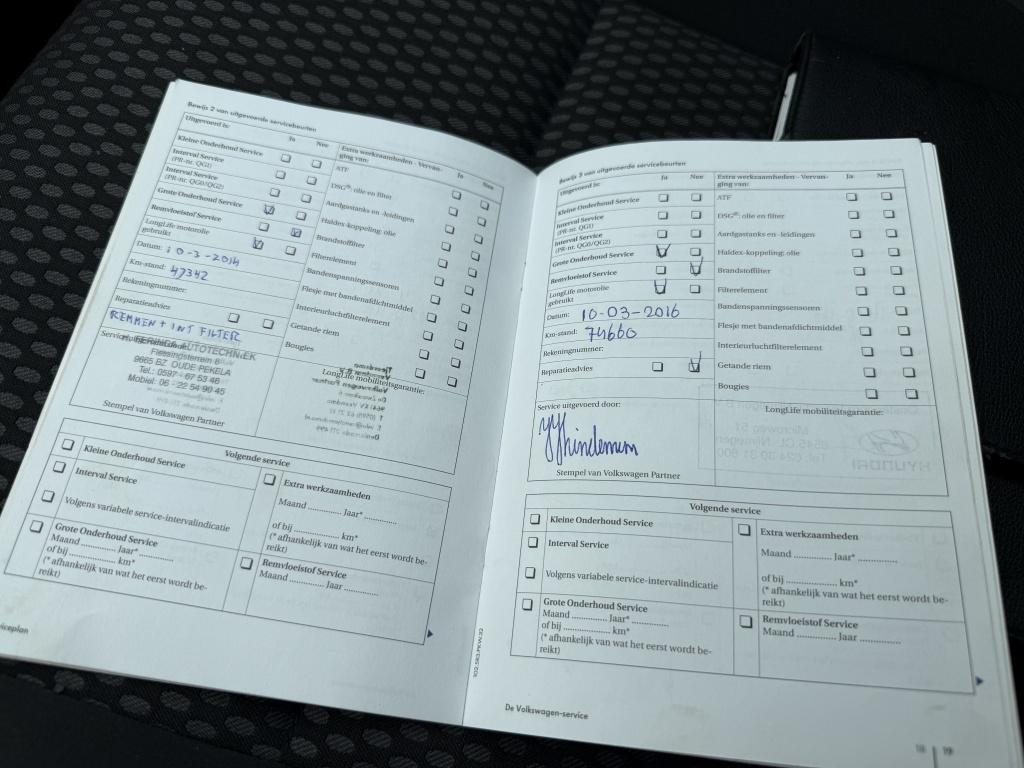 Bewijs 2 van uitgevoerde servicebeurten
Uitgevoerd is: Ja Nee
Kleine Onderhoud Service
Interval Service
(PR-nr. QG1)
Interval Service
(PR-nr. QG0/QG2)
Grote Onderhoud Service
Remvloeistof Service
LongLife motorolie
gebruikt
Datum: 10-3-2014
Km-stand: 47342
Rekeningnummer:
Reparatieadvies
REMMEN + INT FILTER
Extra werkzaamheden - Vervan-
ging van: Ja Nee
ATF
DSG®: olie en filter
Aardgastanks en -leidingen
Haldex-koppeling: olie
Brandstoffilter
Filterelement
Bandenspanningssensoren
Flesje met bandenafdichtmiddel
Interieurluchtfilterelement
Getande riem
Bougies
AUTOTECHNIEK
Flessingsterrein 6
9665 BZ OUDE PEKELA
Tel.: 0597 - 67 53 46
Mobiel: 06 - 22 54 90 45
Stempel van Volkswagen Partner
LongLife mobiliteitsgarantie:
Volgende service
Kleine Onderhoud Service
Interval Service
Volgens variabele service-intervalindicatie
Grote Onderhoud Service
Maand ............ Jaar* ............
of bij ............ km*
(* afhankelijk van wat het eerst wordt be-
reikt)
Extra werkzaamheden
Maand ............ Jaar* ............
of bij ............ km*
(* afhankelijk van wat het eerst wordt be-
reikt)
Remvloeistof Service
Maand ............ Jaar ............
Bewijs 3 van uitgevoerde servicebeurten
Uitgevoerd is: Ja Nee
Kleine Onderhoud Service
Interval Service
(PR-nr. QG1)
Interval Service
(PR-nr. QG0/QG2)
Grote Onderhoud Service
Remvloeistof Service
LongLife motorolie
gebruikt
Datum: 10-03-2016
Km-stand: 74660
Rekeningnummer:
Reparatieadvies
Extra werkzaamheden - Vervan-
ging van: Ja Nee
ATF
DSG®: olie en filter
Aardgastanks en -leidingen
Haldex-koppeling: olie
Brandstoffilter
Filterelement
Bandenspanningssensoren
Flesje met bandenafdichtmiddel
Interieurluchtfilterelement
Getande riem
Bougies
Service uitgevoerd door:
Stempel van Volkswagen Partner
LongLife mobiliteitsgarantie:
HYUNDAI
Volgende service
Kleine Onderhoud Service
Interval Service
Volgens variabele service-intervalindicatie
Grote Onderhoud Service
Maand ............ Jaar* ............
of bij ............ km*
(* afhankelijk van wat het eerst wordt be-
reikt)
Extra werkzaamheden
Maand ............ Jaar* ............
of bij ............ km*
(* afhankelijk van wat het eerst wordt be-
reikt)
Remvloeistof Service
Maand ............ Jaar ............
De Volkswagen-service
19